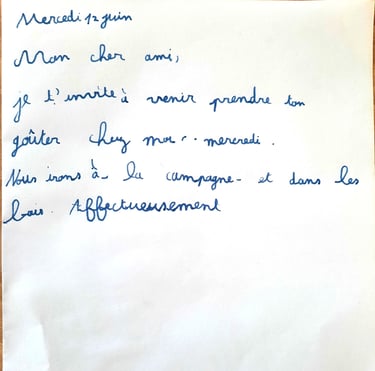 Mercredi 12 juin
Mon cher ami,
je t'invite à venir prendre ton
goûter chez moi mercredi.
Nous irons à la campagne et dans les
bois. Affectueusement